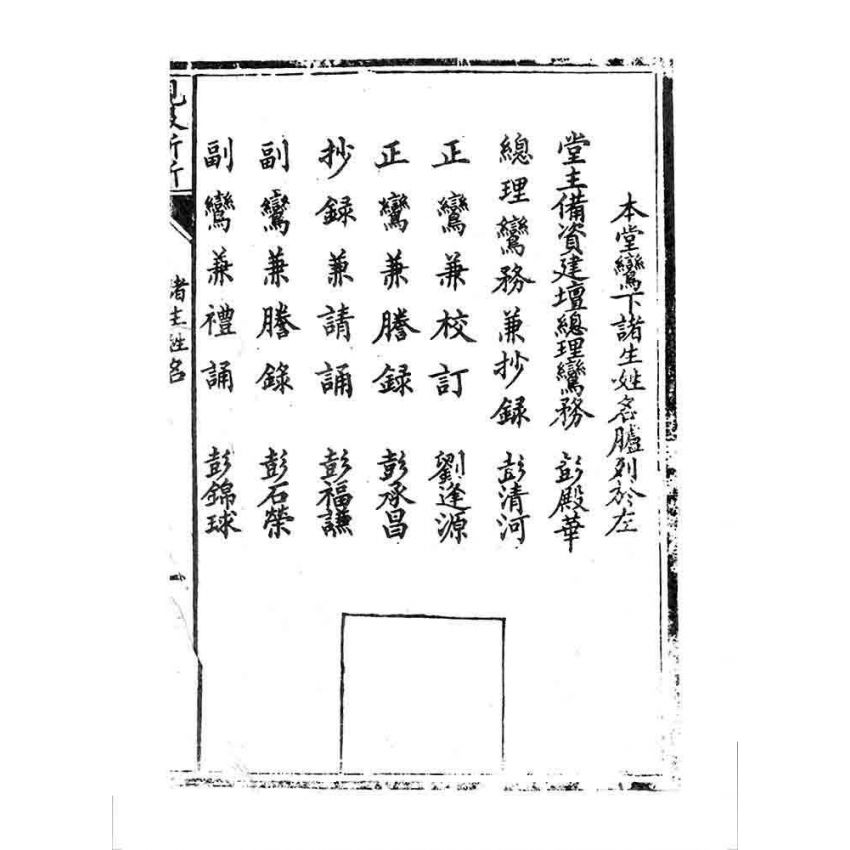 本堂鸞下諸生姓名臚列於左
堂主備資建壇總理鸞務 彭殿華
總理鸞務兼抄録 彭清河
正鸞兼校訂 劉逢源
正鸞兼謄録 彭承昌
抄録兼請誦 彭福謙
副鸞兼謄錄 彭石榮
副鸞兼禮誦 彭錦球
諸生姓名